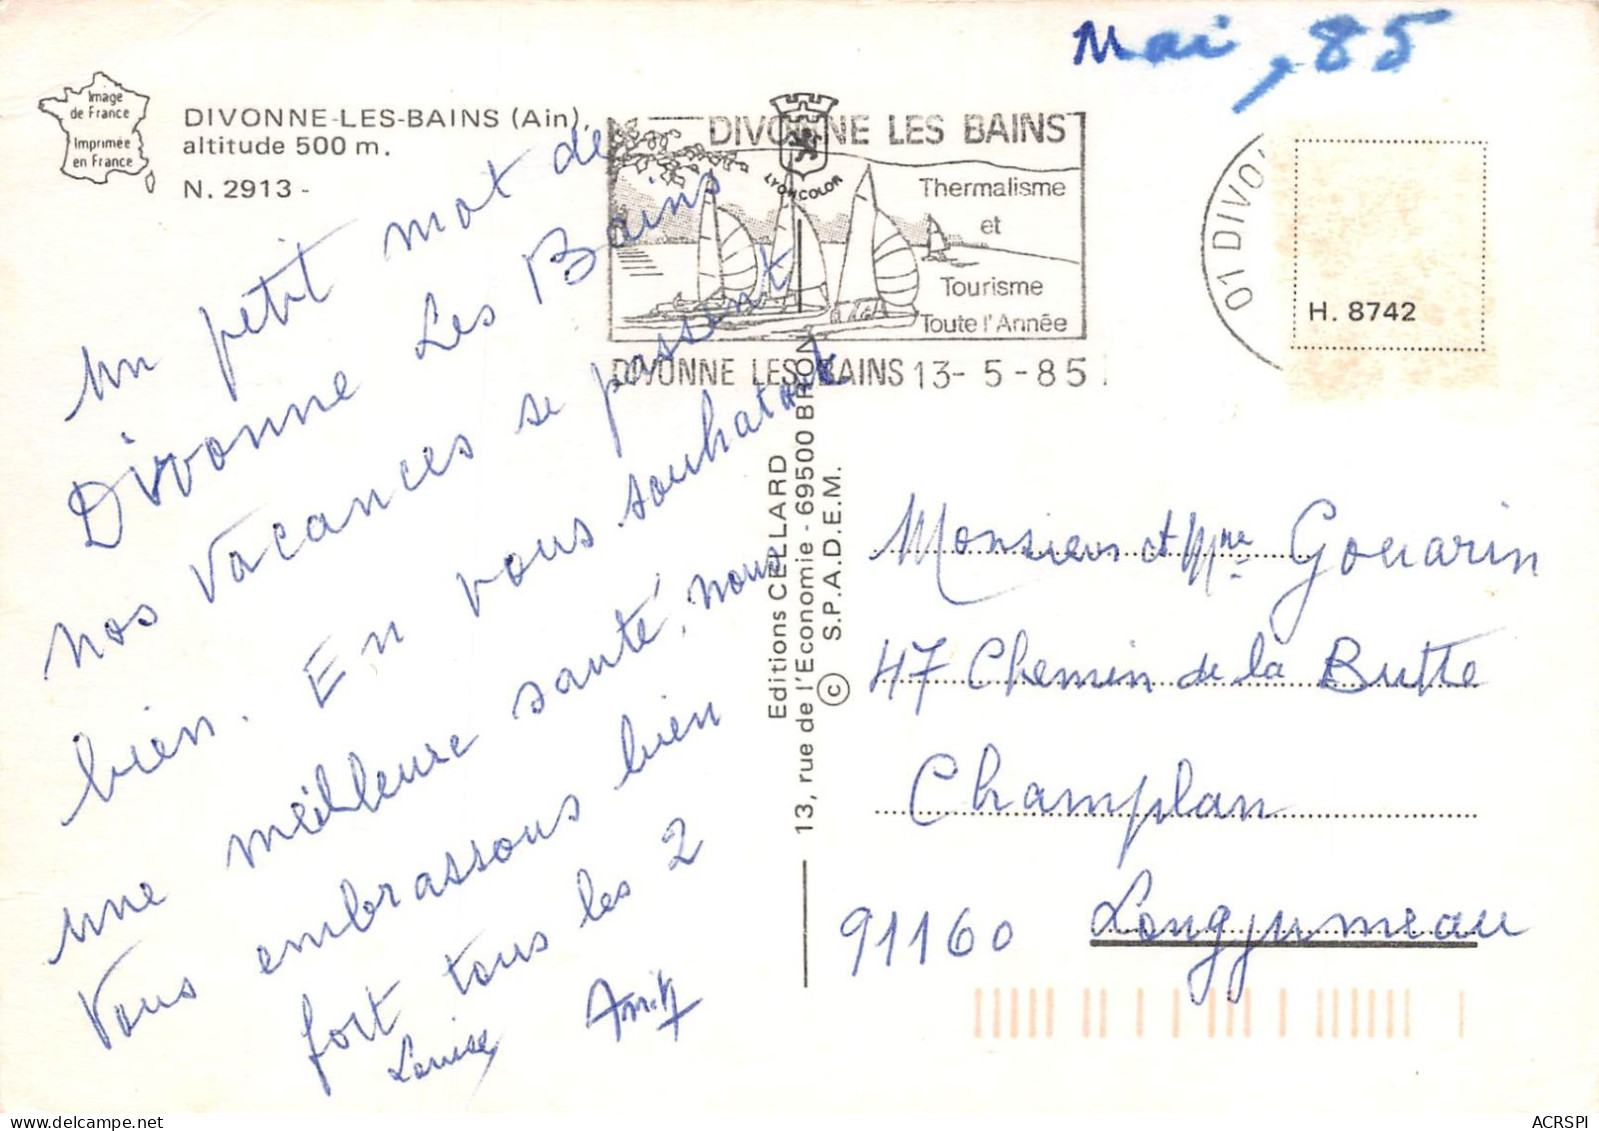 Mai, 85
Image
de France
Imprimée
en France
DIVONNE-LES-BAINS (Ain),
altitude 500 m.
N. 2913 -
DIVONNE LES BAINS
LYONCOLOR
Thermalisme
et
Tourisme
Toute l'Année
DIVONNE LES BAINS 13-5-85
01 DIVO
H. 8742
Un petit mot de
Divonne Les Bains
nos vacances se passent
bien. En vous souhatant
une meilleure santé, nous
Vous embrassons bien
fort tous les 2
Louise
Editions CELLARD
13, rue de l'Economie - 69500 BRON
© S.P.A.D.E.M.
Monsieur et Mme Gouarin
47 Chemin de la Butte
Champlan
91160 Longjumeau
ACRSPI